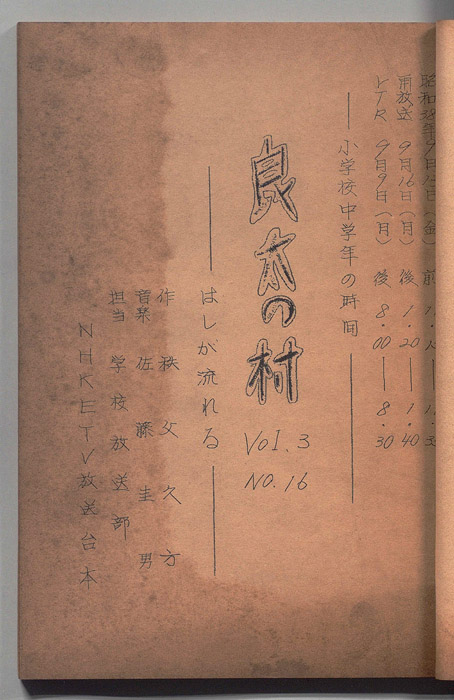 昭和38年9月13日（金） 前
再放送 9月16日（月） 後 1・20 ― 1・40
VTR 9月9日（月） 後 8・00 ― 8・30
― 小学校中学年の時間 ―
良太の村
Vol.3
NO.16
― はしが流れる ―
作 秩父久方
音楽 佐藤圭男
担当 学校放送部
NHKETV放送台本